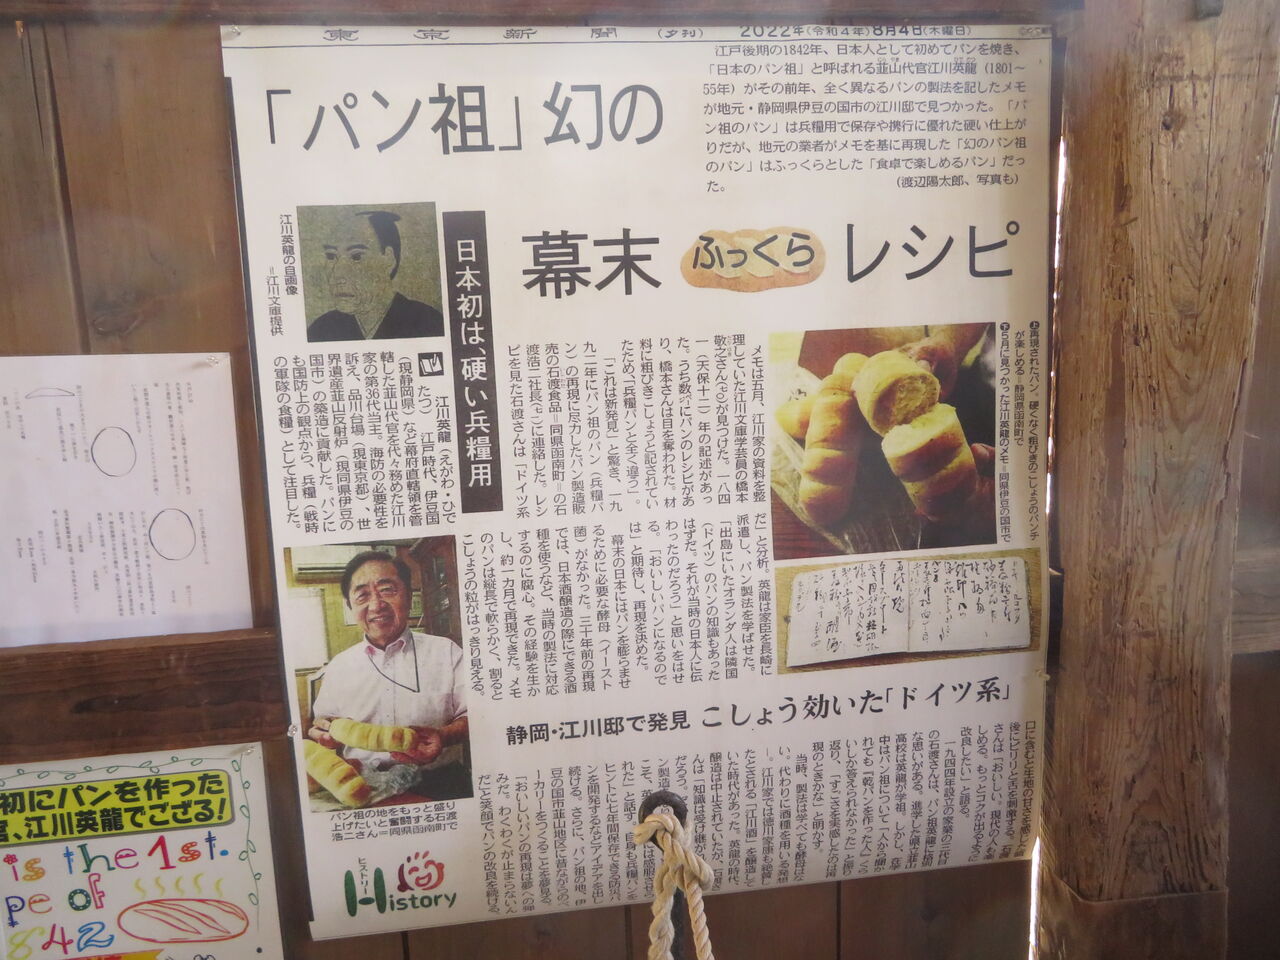 東京新聞 (夕刊) 2022年(令和4年)8月4日(木曜日)
「パン祖」幻の
幕末 ふっくら レシピ
江戸後期の1842年、日本人として初めてパンを焼き、
「日本のパン祖」と呼ばれる韮山代官江川英龍(1801〜
55年)がその前年、全く異なるパンの製法を記したメモ
が地元・静岡県伊豆の国市の江川邸で見つかった。「パ
ン祖のパン」は兵糧用で保存や携行に優れた硬い仕上が
りだが、地元の業者がメモを基に再現した「幻のパン祖
のパン」はふっくらとした「食卓で楽しめるパン」だっ
た。
(渡辺陽太郎、写真も)
日本初は、硬い兵糧用
江川英龍の自画像
=江川文庫提供
江川英龍(えがわ・ひで
たつ) 江戸時代、伊豆国
(現静岡県)など幕府直轄領を管
轄した韮山代官を代々務めた江川
家の第36代当主。海防の必要性を
訴え、品川台場(現東京都)、世
界遺産韮山反射炉(現同県伊豆の
国市)の築造に貢献した。パンに
も国防上の観点から、兵糧(戦時
の軍隊の食糧)として注目した。
㊤再現されたパン。硬くなく粗びきのこしょうのパンチ
が楽しめる=静岡県函南町で
㊦5月に見つかった江川英龍のメモ=同県伊豆の国市で
メモは五月、江川家の資料を整
理していた江川文庫学芸員の橋本
敬之さん
が見つけた。一八四
一(天保十二)年の記述があっ
た。うち数㌻にパンのレシピがあ
り、橋本さんは目を奪われた。材
料に粗びきこしょうと記されてい
たため、「兵糧パンと全く違う」。
「これは新発見」と驚き、一九
九二年にパン祖のパン(兵糧パ
ン)の再現に尽力したパン製造販
売の石渡食品=同県函南町=の石
渡浩二社長
に連絡した。レシ
ピを見た石渡さんは「ドイツ系
だ」と分析。英龍は家臣を長崎に
派遣し、パン製法を学ばせた。
「出島にいたオランダ人は隣国
(ドイツ)のパンの知識もあった
はずだ。それが当時の日本人に伝
わったのだろう」と思いをはせ
る。「おいしいパンになるので
は」と期待し、再現を決めた。
幕末の日本にはパンを膨らませ
るために必要な酵母(イースト
菌)がなかった。三十年前の再現
では、日本酒醸造の際にできる酒
種を使うなど、当時の製法に対応
するのに腐心。その経験を生か
し、約一カ月で再現できた。メモ
のパンは縦長で軟らかく、割ると
こしょうの粒がはっきり見える。
静岡・江川邸で発見 こしょう効いた「ドイツ系」
口に含むと生地の甘さを感じた
後にピリリと舌を刺激する。石渡
さんは「おいしい。現代の人も楽
しめる。もっとコクが出るように
改良したい」と語る。
一九四四年設立の家業の三代目
の石渡さんは、パン祖英龍に格別
な思いがある。進学した県立韮山
高校は英龍が学祖。しかし、在学
中はパン祖について「人から聞か
れても『乾パンを作った人』ぐら
いしか答えられなかった」と振り
返り、「すごさを実感したのは再
現のときかな」と明かす。
当時、製法は学べても酵母はな
い。代わりに酒種を用いる発想
江川家では徳川家康も絶賛し
たとされる「江川酒」を醸造して
いた時代があった。英龍の時代、
醸造は中止されていたが、石渡さ
んは「知識は受け継がれ
だろう
れた」と話す。自身も兵糧パンを
ヒントに七年間保存できる防災パ
ンを開発するなどアイデアを出し
続ける。さらに、パン祖の地、伊
豆の国市韮山地区に昔ながらのベ
ーカリーをつくることを夢見る。
「おいしいパンの再現は夢への弾
みだ。わくわくが止まらないん
だ」と笑顔でパンの改良を続ける。
パン祖の地をもっと盛り
上げたいと奮闘する石渡
浩二さん=同県函南町で
ヒストリー
History
初にパンを作った
官、江川英龍でござる!
is the 1st.
pe of
842